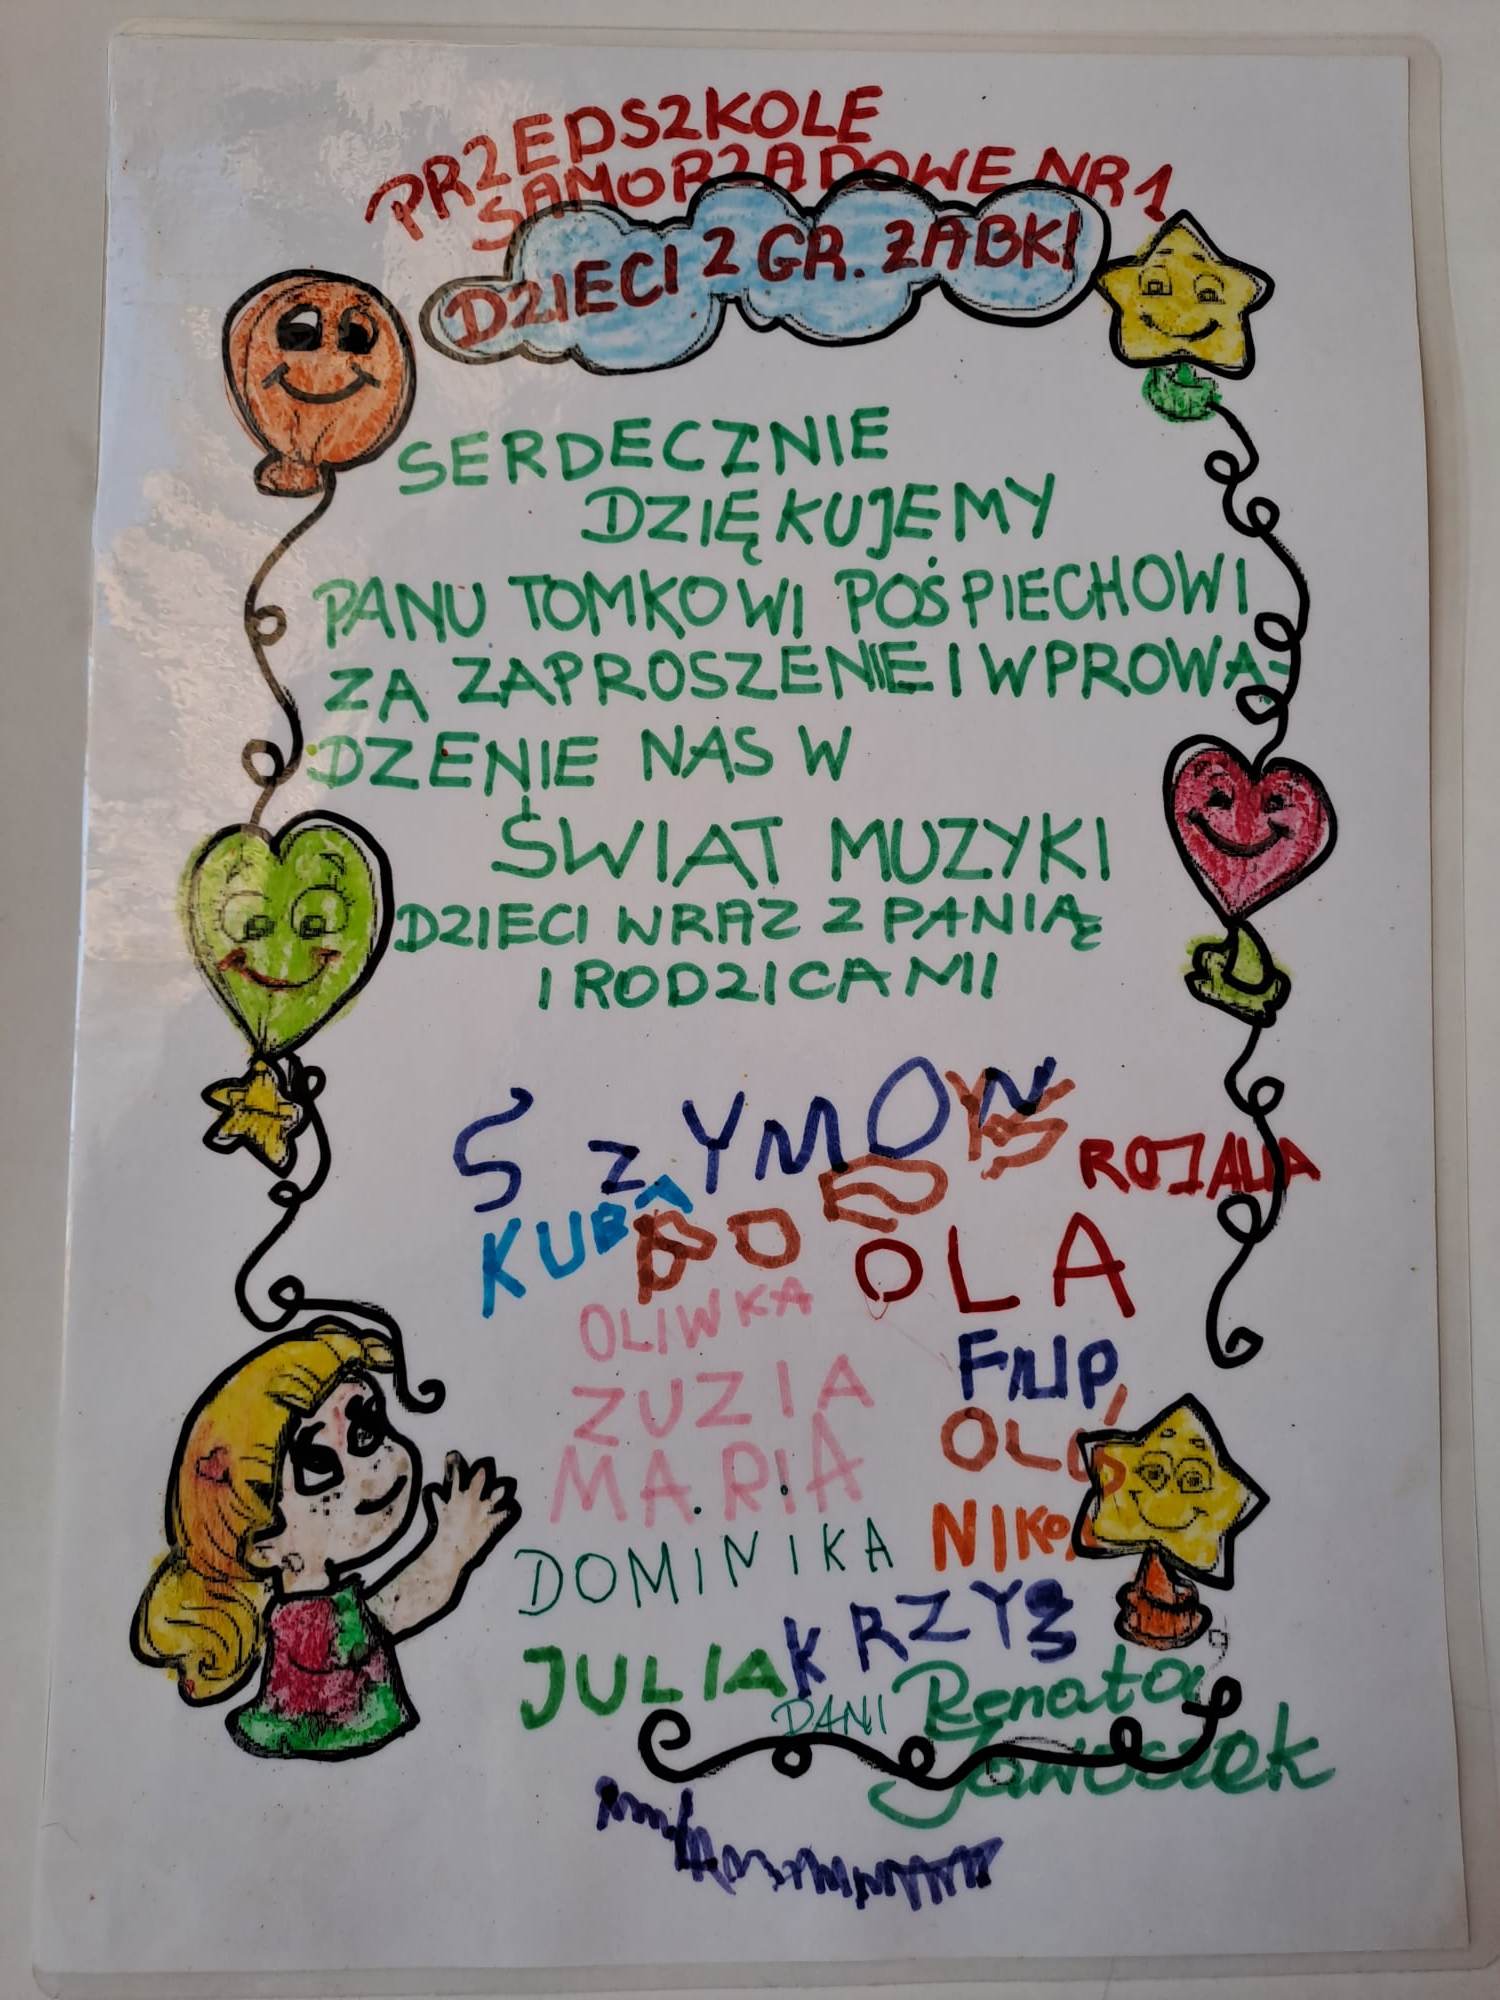 PRZEDSZKOLE
SAMORZĄDOWE NR 1
DZIECI Z GR. ŻABKI
SERDECZNIE
DZIĘKUJEMY
PANU TOMKOWI POŚPIECHOWI
ZA ZAPROSZENIE I WPROWA-
DZENIE NAS W
ŚWIAT MUZYKI
DZIECI WRAZ Z PANIĄ
I RODZICAMI
SZYMON
ROZALIA
KUBA
OLA
OLIWKA
FILIP
ZUZIA
MARIA
DOMINIKA
JULIA
KRZYŚ
DANI
Renata
Jawoszek